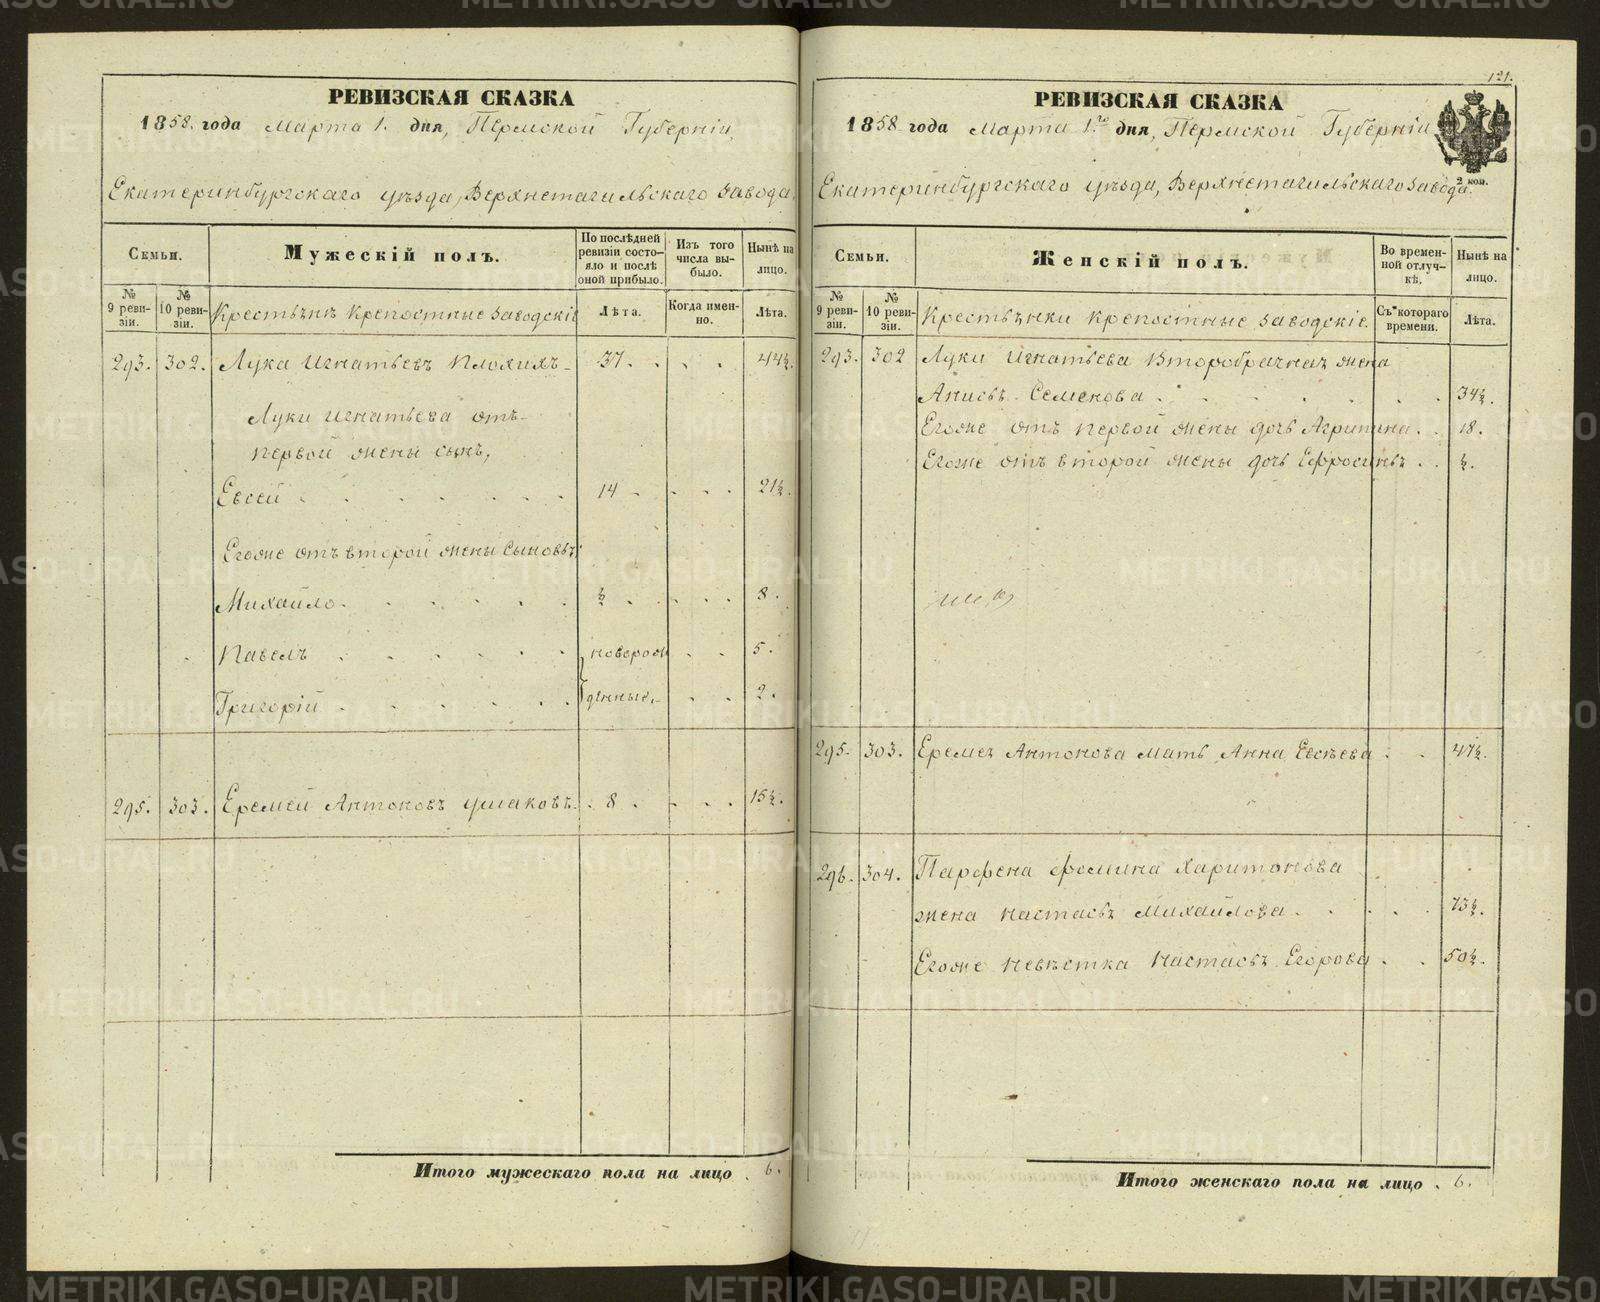 РЕВИЗСКАЯ СКАЗКА
1858. года Марта 1. дня, Пермской Губерніи,
Екатеринбургскаго уѣзда, Верхнетагильскаго завода,
Семьи.
Мужескій полъ.
По послѣдней ревизіи состо-яло и послѣ оной прибыло.
Изъ того числа вы-было.
Нынѣ на лицо.
№ 9 реви-зіи.
№ 10 реви-зіи.
Крестьяне крепостные заводскіе
Лѣта.
Когда имен-но.
Лѣта.
293. 302. Лука Игнатьевъ Плохихъ 37. 44½.
Луки Игнатьева отъ
первой жены сынъ,
Евсей 14 21½.
Егоже отъ второй жены сыновья:
Михайло ½ 8.
Павелъ новорож 5.
Григорій денные. 2.
295. 303. Еремей Антоновъ Ушаковъ 8. 15½.
Итого мужескаго пола на лицо . 6.
121.
РЕВИЗСКАЯ СКАЗКА
1858 года Марта 1.го дня, Пермской Губерніи
2 коп.
Екатеринбургскаго уѣзда, Верхнетагильскаго завода.
Семьи.
Женскій полъ.
Во времен-ной отлуч-кѣ.
Нынѣ на лицо.
№ 9 реви-зіи.
№ 10 реви-зіи.
Крестьянки крепостные заводскіе.
Съ котораго времени.
Лѣта.
293. 302 Луки Игнатьева второбрачная жена
Анисья Семенова 34½.
Егоже отъ первой жены дочь Агрипина 18.
Егоже отъ второй жены дочь Ефросинья ½.
295. 303. Еремея Антонова мать Анна Евсѣева 47½.
296. 304. Парфена Фомина Харитонова
жена Настасья Михайлова 73½.
Егоже невѣстка Настасья Егорова 50½.
Итого женскаго пола на лицо . 6.
METRIKI.GASO-URAL.RU